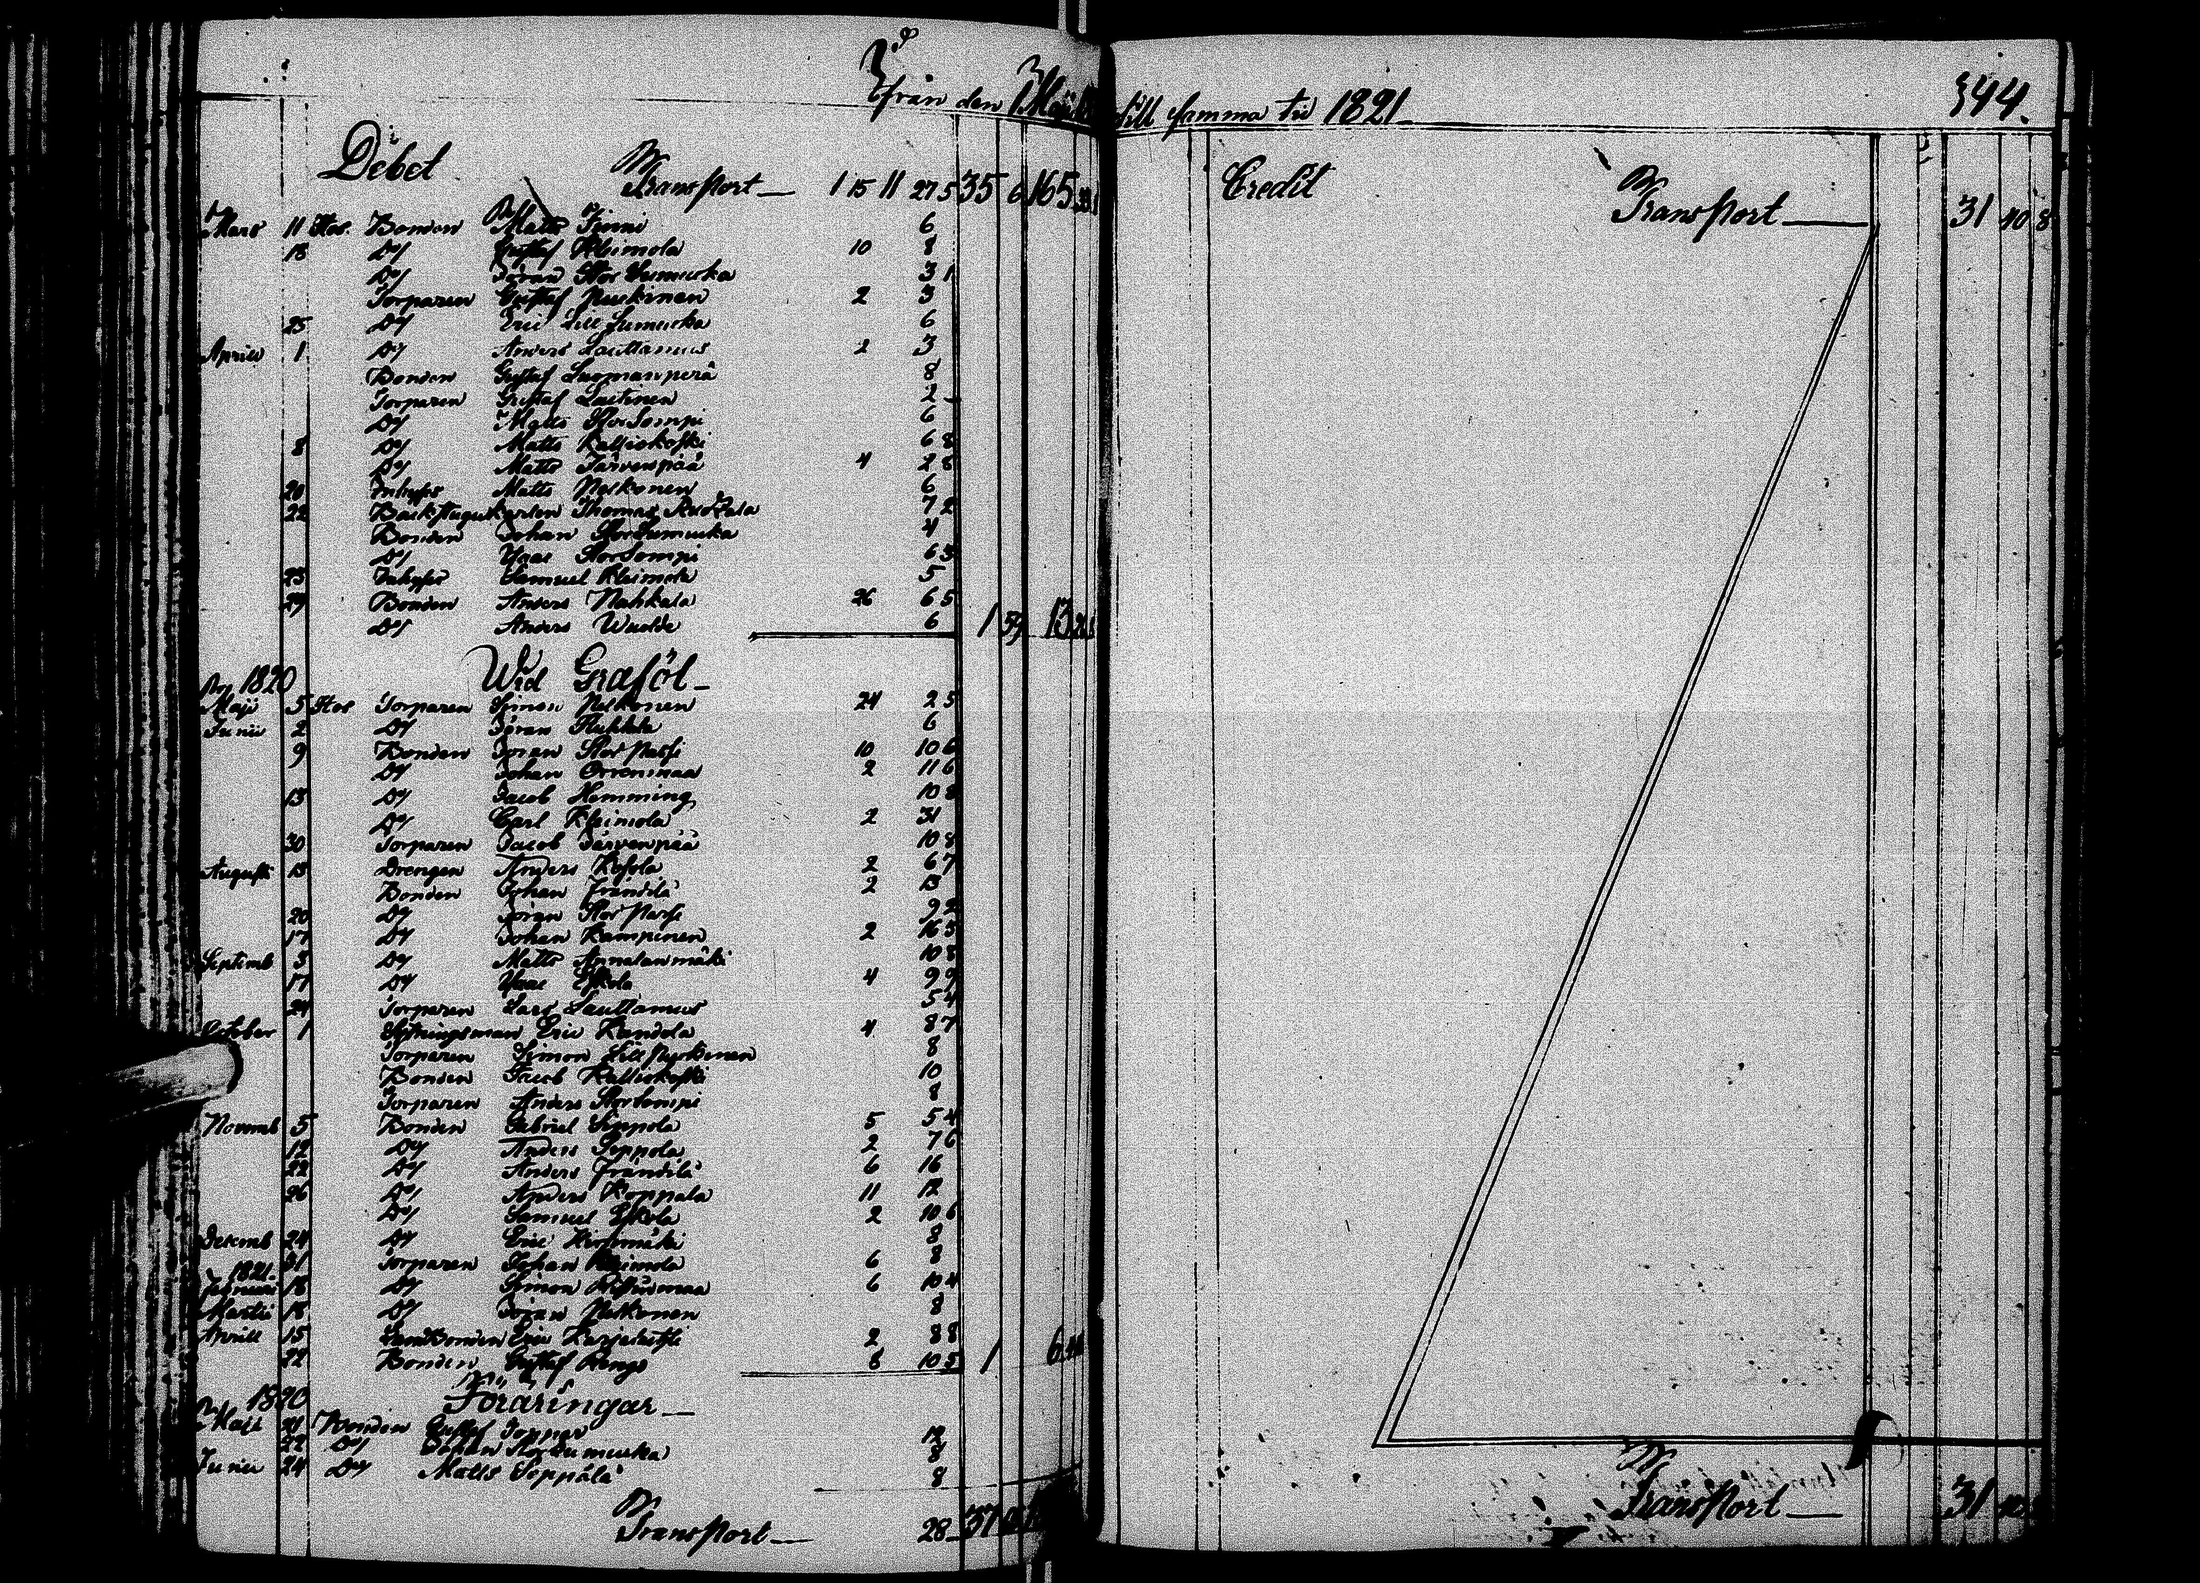 från den 1 Maji till samma tid 1821
344.
Debet
Transport 1 15 11 27 5 35 6 165
Mars 11 Hos Bonden Matts Finni 6
18 Dy Gustaf Kleimola 10 8
Dy Jöran Stor Lumucka 3 1
Torparen Gustaf 2 3
25 Dy Eric Lill Lumucka 6
Aprill 1 Dy Anders Lauttamus 2 3
Bonden Gustaf Luomanperä 8
Torparen Gustaf Laitinen 2
Dy Matts StorSompi 6
8 Dy Matts Kalliokoski 6 8
Dy Matts Järvenpää 4 2 8
20 Inhyses Matts Neskonen 6
22 Backstugukarlen Thomas 7 2
Bonden Johan StorLumucka 4
Dy Isaac StorSompi 6 3
23 Inhyses Samuel Kleimola 5
29 Bonden Anders Nahkala 26 6 5
Dy Anders 6 1 59 13
Wid Grafööl
1820
Maji 5 Hos Torparen Simon Neskonen 24 2 5
Junii 2 Dy Jöran 6
9 Bonden Jöran Stor Passi 10 10 6
Dy Johan Orrenmaa 2 11 6
13 Dy Jacob Hemming 10 8
Dy Carl Kleimola 2 31
30 Torparen Jacob Järvenpää 10 8
Augusti 13 Drengen Anders 2 6 7
Bonden Johan Frändilä 2 13
20 Dy Jöran Stor Passi 9 2
17 Dy Johan Kampinen 2 16 5
Septemb 3 Dy Matts Annalanmäki 10 8
17 Dy Isaac Eskola 4 9 9
24 Torparen Lars Lauttamus 5 4
October 1 Eric Kandola 4 8 7
Torparen Simon Lill 8
Bonden Jacob Kalliokoski 10
Torparen Anders StorSompi 8
Novemb 5 Bonden Gabriel Seppola 5 5 4
12 Dy Anders Seppola 2 7 6
22 Dy Anders Frändilä 6 16
26 Dy Anders Koppala 11 12
Dy Samuel Eskola 2 10 6
Decemb 24 Dy Eric 8
31 Torparen Johan Kleimola 6 8
1821
18 Dy Simon 6 10 4
Martii 18 Dy Jöran Neskonen 8
Aprill 15 Landbonden Eric 2 8 8
22 Bonden Gustaf Rengo 8 10 5 1 6
Föräringar
1820
Maji 21 Bonden Gustaf 12
22 Dy Johan StorLumucka 8
Junii 24 Dy Matts Seppälä 8
Transport 28 37
Credit
Transport 31 40 8
Transport 31